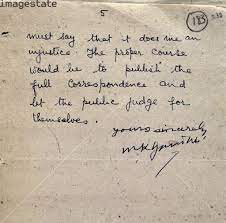 imagestate
5
183
must say that it does me an
injustice. The proper course
would be to publish the
full correspondence and
let the public judge for
themselves.
yours sincerely
MKGandhi